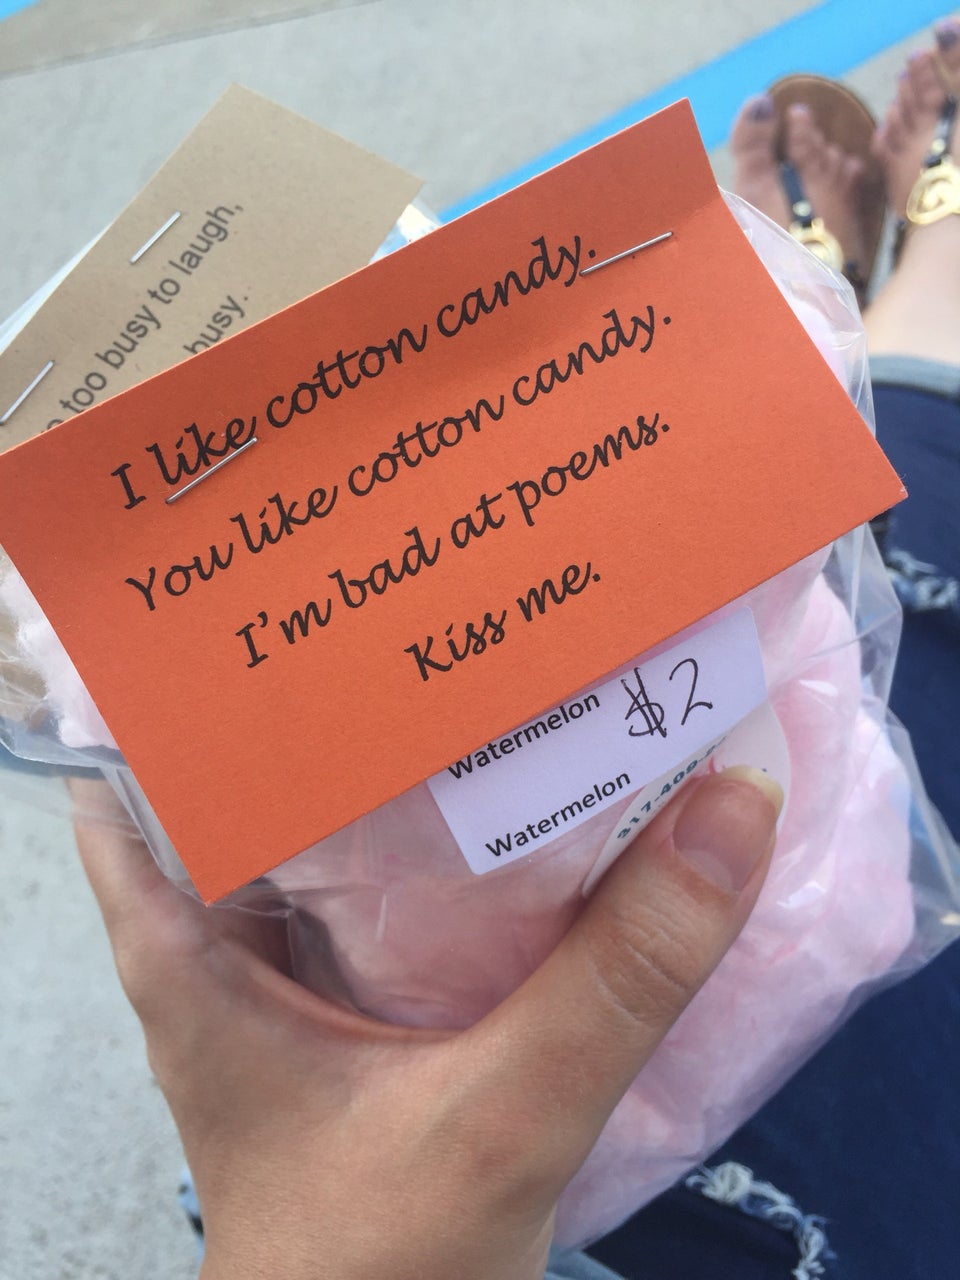 too busy to laugh,
busy.
I like cotton candy.
You like cotton candy.
I'm bad at poems.
Kiss me.
Watermelon $2
Watermelon
317-409-2